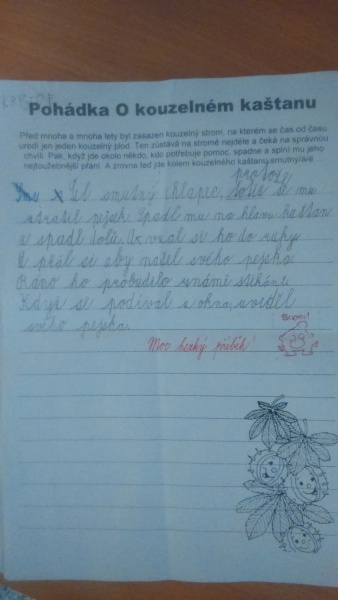 Pohádka O kouzelném kaštanu
Před mnoha a mnoha lety byl zasazen kouzelný strom, na kterém se čas od času
urodí jen jeden kouzelný plod. Ten zůstává na stromě nejdéle a čeká na správnou
chvíli. Pak, když jde okolo někdo, kdo potřebuje pomoc, spadne a splní mu jeho
nejtoužebnější přání. A zrovna teď jde kolem kouzelného kaštanu smutný/á/é
protože
Šel smutný chlapec, se mu
ztratil pejsek. Spadl mu na hlavu kaštan
a spadl dolů. On vzal si ho do ruky.
A přál si aby našel svého pejska.
Ráno ho probudilo známé štěkání.
Když se podíval z okna, uviděl
svého pejska.
Moc hezký příběh!